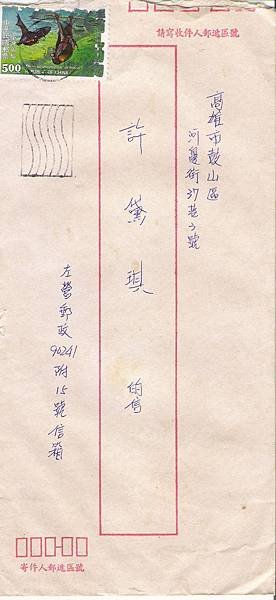 請寫收件人郵遞區號
高雄市鼓山區
河邊街37巷3號
許黛琪 的信
左營郵政
90241
附15號信箱
500
REPUBLIC OF CHINA
寄件人郵遞區號